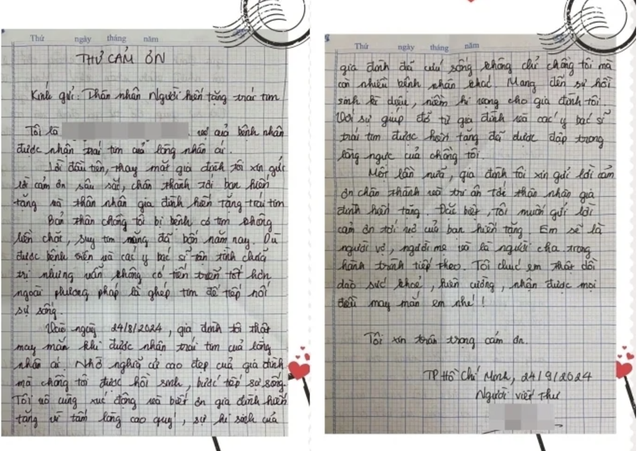 Thứ ngày tháng năm
THƯ CẢM ƠN
Kính gửi: Thân nhân Người hiến tặng trái tim
Tôi là , vợ của bệnh nhân
được nhận trái tim của lòng nhân ái.
Lời đầu tiên, thay mặt gia đình tôi xin gửi
lời cảm ơn sâu sắc, chân thành tới bạn hiến
tặng và thân nhân gia đình hiến tặng trái tim
Bản thân chồng tôi bị bệnh cơ tim không
liên chất, suy tim nặng đã bốn năm nay. Dù
được bệnh viện và các y bác sĩ tận tình chữa
trị nhưng vẫn không có tiến triển tốt hơn
ngoài phương pháp là ghép tim để tiếp nối
sự sống.
Vào ngày 24/8/2024, gia đình tôi thật
may mắn khi được nhận trái tim của lòng
nhân ái. Nhờ nghĩa cử cao đẹp của gia đình
mà chồng tôi được hồi sinh, được tiếp sự sống
Tôi vô cùng xúc động và biết ơn gia đình hiến
tặng vì tấm lòng cao quý, sự hi sinh của
Thứ ngày tháng năm
gia đình đã cứu sống không chỉ chồng tôi mà
còn nhiều bệnh nhân khác. Mang đến sự hồi
sinh kì diệu, niềm hi vọng cho gia đình tôi.
Với sự giúp đỡ từ gia đình và các y bác sĩ
trái tim được hiến tặng đã được đập trong
lồng ngực của chồng tôi.
Một lần nữa, gia đình tôi xin gửi lời cảm
ơn chân thành và tri ân tới thân nhân gia
đình hiến tặng. Đặc biệt, tôi muốn gửi lời
cảm ơn tới vợ của bạn hiến tặng. Em sẽ là
người vợ, người mẹ và là người cha trong
hành trình tiếp theo. Tôi chúc em thật dồi
dào sức khoẻ, kiên cường, nhận được mọi
điều may mắn em nhé!
Tôi xin trân trọng cảm ơn.
TP Hồ Chí Minh, 24/9/2024
Người viết thư